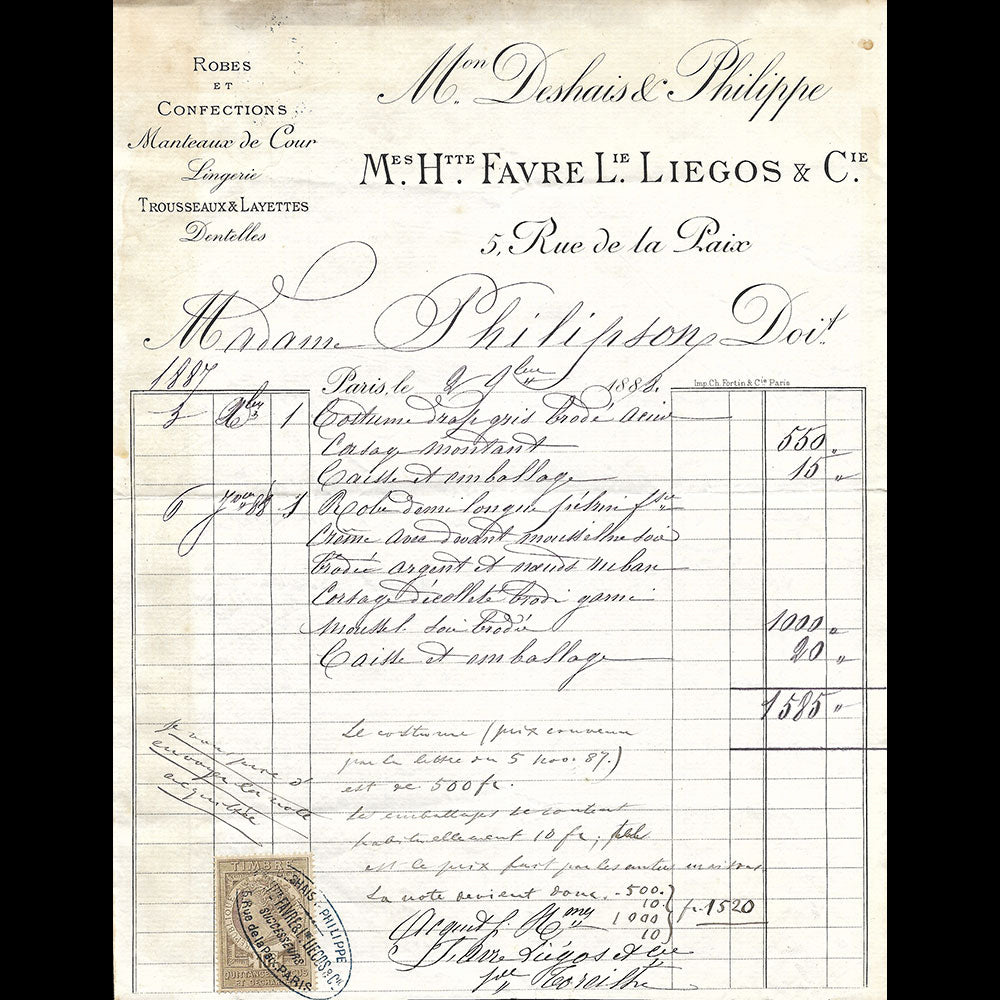 ROBES
ET
CONFECTIONS
Manteaux de Cour
Lingerie
TROUSSEAUX & LAYETTES
Dentelles
Mon. Deshais & Philippe
Mes. Htte. FAVRE Lie. LIEGOS & Cie.
5, Rue de la Paix
Madame Philipson Doit
1887
Paris, le 2 9bre 1888.
Imp. Ch. Fortin & Cie Paris
5 Xbre 1 Costume drap gris brodé acier
Corsage montant 550 "
Caisse et emballage 15 "
6 88 1 Robe demi longue
Crême avec devant mousseline soie
brodée argent et nœuds ruban
Corsage décolleté brodé garni
Moussel. soie brodée 1000 "
Caisse et emballage 20 "
1585 "
Le costume (prix convenu
par la lettre du 5 nov. 87.)
est de 500 fr.
les emballages se comptent
habituellement 10 fr;
est le prix fait par les autres maisons
La note devient donc. 500.
10
1000
10
fr. 1520
je vous prie d
envoyer la note
acquittée
Acquit p. Mmes
Favre Liégos et Cie
TIMBRE
QUITTANCES
DESHAIS & PHILIPPE
Htte FAVRE Lie LIEGOS & Cie
SUCCESSEURS
5, Rue de la Paix PARIS